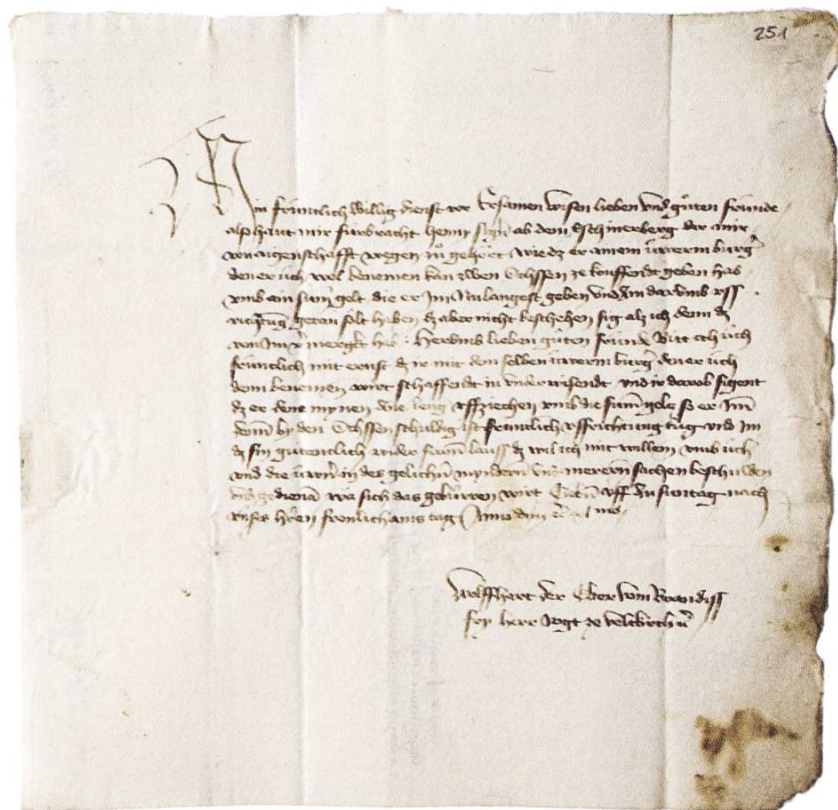 251
Min fruntlich willig dienst vor Ersamen wisen lieben vnd guͦten frúnde
alz haut mir fúrbracht henny ab dem Eschinerberg der mir
von aigenschafft wegen zuͦ gehoͤrt wie dz er ainem úwerm burgr
den er úch wol benemen kan zwen Ochssen ze kouffendt geben hab
vmb ain sum gelt die er Jm vnlangest geben vnd Jm darumb vss
richtung getan solt haben dz aber nicht beschehen sig alz ich denn dz
von Jm vermerght hab Herumb lieben guͦten frúnde Bitt ich úch
frúntlich mit ernst dz ir mit dem selben úwerm burgr den er úch
denn benemen wirt schaffendt in vnderwisendt vnd ir darob sigent
dz er dem mynen one leng vffziechen vmb die sum geltz so er Jm
denn by den Ochssen schuldig ist fruntlich vssrichtung túg vnd Jm
dz sin guͤtenclich wider faren lauss dz wil ich mit willen vmb úch
vnd die úwern in des gelichen myndern vnd merern sachen beschulden
vnd gedienen wa sich das gebúrren wirt Geben vff Sunntag nach
vnsers hren fronlichams tag Anno dm
Wolffhart der Elter von Brandiss
fry herr vogt ze veltkirch